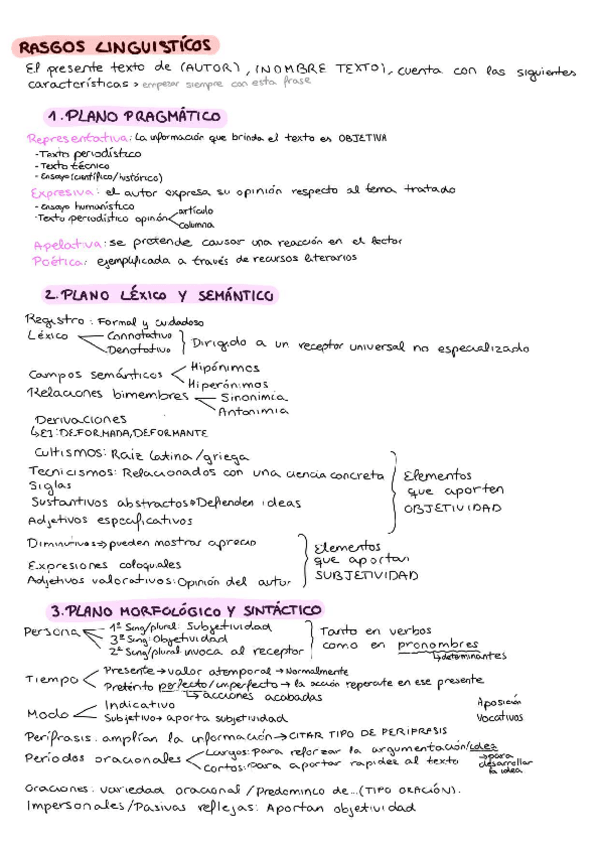 RASGOS LINGUISTÍCOS
El presente texto de (AUTOR), (NOMBRE TEXTO), cuenta con las siguientes
características > empezar siempre con esta frase
1. PLANO PRAGMÁTICO
Representativa: La información que brinda el texto es OBJETIVA
- Texto periodístico
- Texto técnico
- Ensayo (científico/histórico)
Expresiva: el autor expresa su opinión respecto al tema tratado
- Ensayo humanístico
- Texto periodístico opinión artículo
columna
Apelativa: se pretende causar una reacción en el lector
Poética: ejemplificada a través de recursos literarios
2. PLANO LÉXICO Y SEMÁNTICO
Registro: Formal y cuidadoso
Léxico Connotativo
Denotativo Dirigido a un receptor universal no especializado
Campos semánticos Hipónimos
Hiperónimos
Relaciones bimembres Sinonimia
Antonimia
Derivaciones
↳EJ: DEFORMADA, DEFORMANTE
Cultismos: Raiz latina/griega
Tecnicismos: Relacionados con una ciencia concreta
Siglas
Sustantivos abstractos→Defienden ideas
Adjetivos especificativos
Elementos
que aporten
OBJETIVIDAD
Diminutivos→pueden mostrar aprecio
Expresiones coloquiales
Adjetivos valorativos: Opinión del autor
Elementos
que aportan
SUBJETIVIDAD
3. PLANO MORFOLÓGICO Y SINTÁCTICO
Persona 1ª Sing/plural: Subjetividad
3ª Sing: Objetividad
2ª Sing/plural invoca al receptor
Tanto en verbos
como en pronombres
↳determinantes
Tiempo Presente→valor atemporal→Normalmente
Pretérito perfecto/imperfecto→la acción repercute en ese presente
↳acciones acabadas
Modo Indicativo
Subjetivo→aporta subjetividad
Aposición
Vocativos
Perífrasis: amplían la información→CITAR TIPO DE PERÍFRASIS
Periodos oracionales Largos: Para reforzar la argumentación/idea
→para
desarrollar
la idea
Cortos: para aportar rapidez al texto
Oraciones: variedad oracional / Predominio de...(TIPO ORACIÓN).
Impersonales/Pasivas reflejas: Aportan objetividad